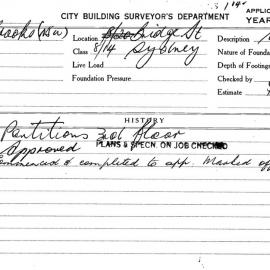 CITY BUILDING SURVEYOR'S DEPARTMENT
APPLIC
YEAR
Location Bridge St
Description
Class 8/14 Sydney
Nature of Foundat
Live Load
Depth of Footings
Foundation Pressure
Checked by
Estimate
HISTORY
Partitions 3rd floor
Approved PLANS & SPECN. ON JOB CHECKED
Commenced & completed to app. Marked off